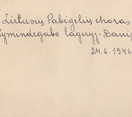 Lietuvių Pabėgėlių choras
Gymindegabo lageryj - Danijoj
24.6.1946